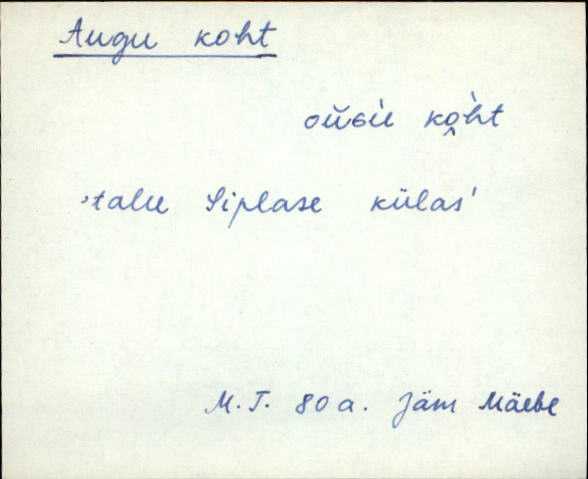 Augu koht
koht
'talu Siplase külas'
M.T. 80 a. Jäm Mäebe